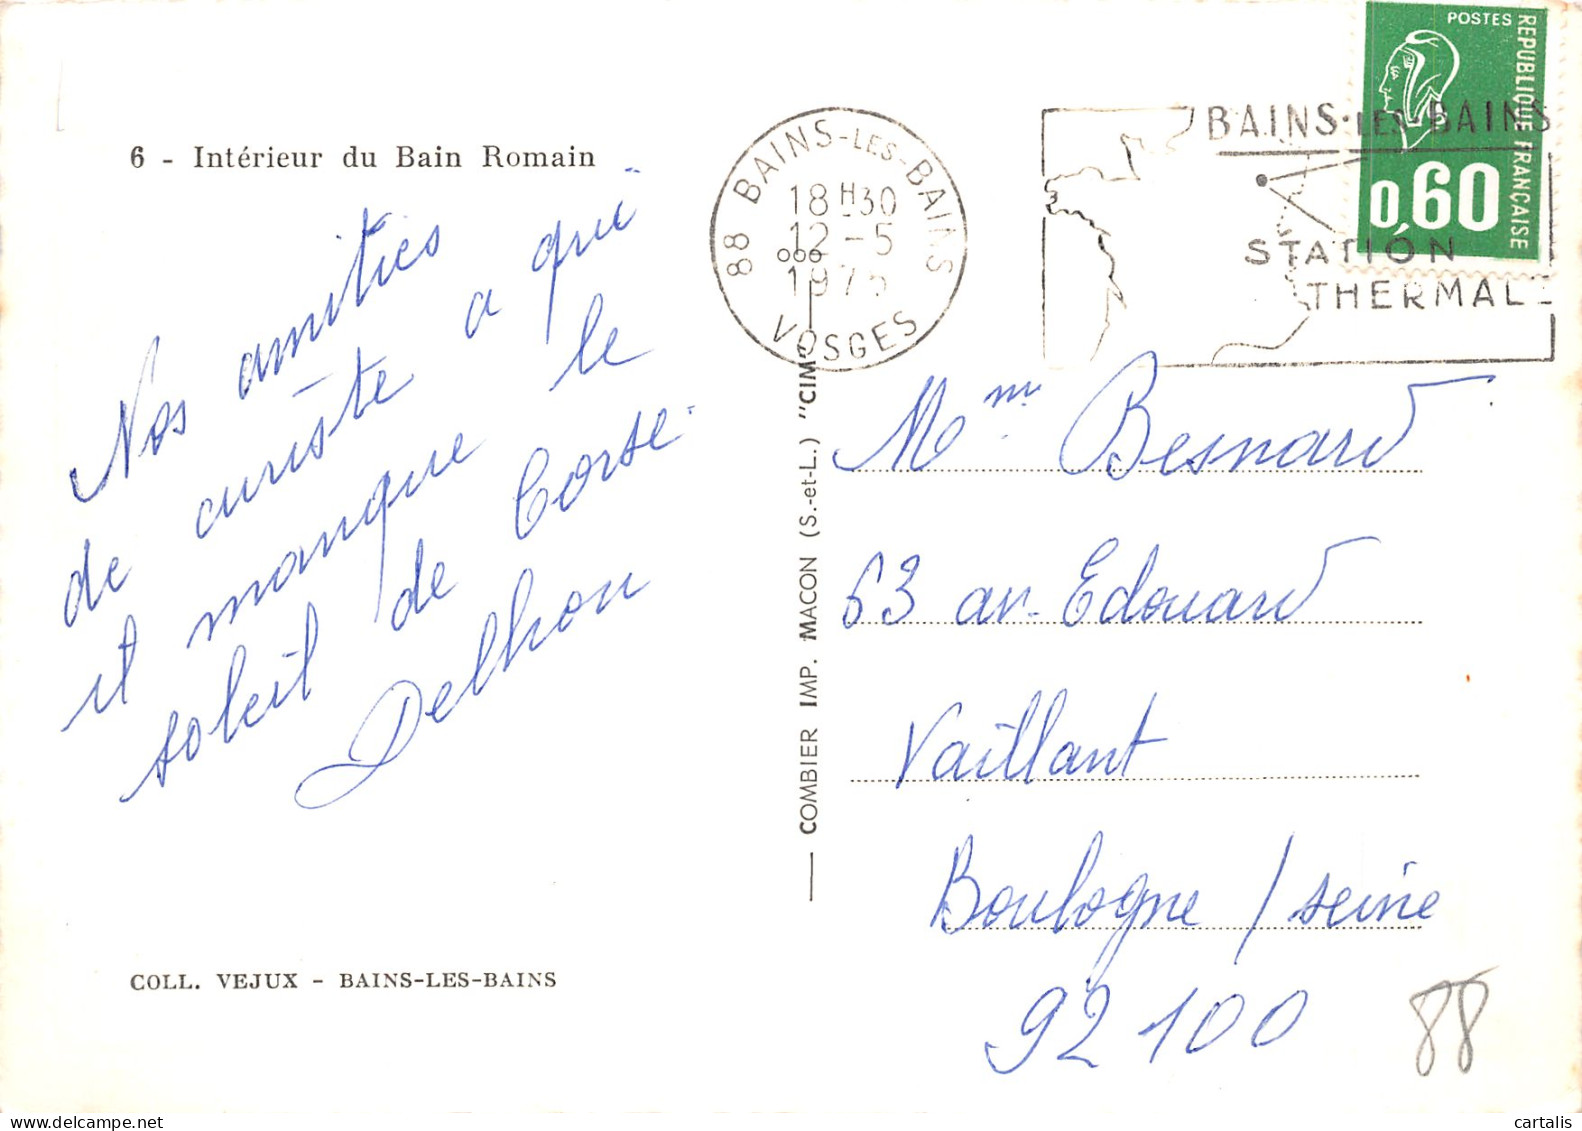 6 - Intérieur du Bain Romain
Nos amities
de curiste a qui
il manque le
soleil de Corse.
Delhou
COLL. VEJUX - BAINS-LES-BAINS
COMBIER IMP. MACON (S.-et-L.) "CIM"
88 BAINS-LES-BAINS
18 H 30
12 - 5
VOSGES
BAINS·LES-BAINS
STATION
THERMALE
POSTES
REPUBLIQUE FRANÇAISE
0,60
Mme Besnard
63 av. Edouard
Vaillant
Boulogne / seine
92 100
88
cartalis